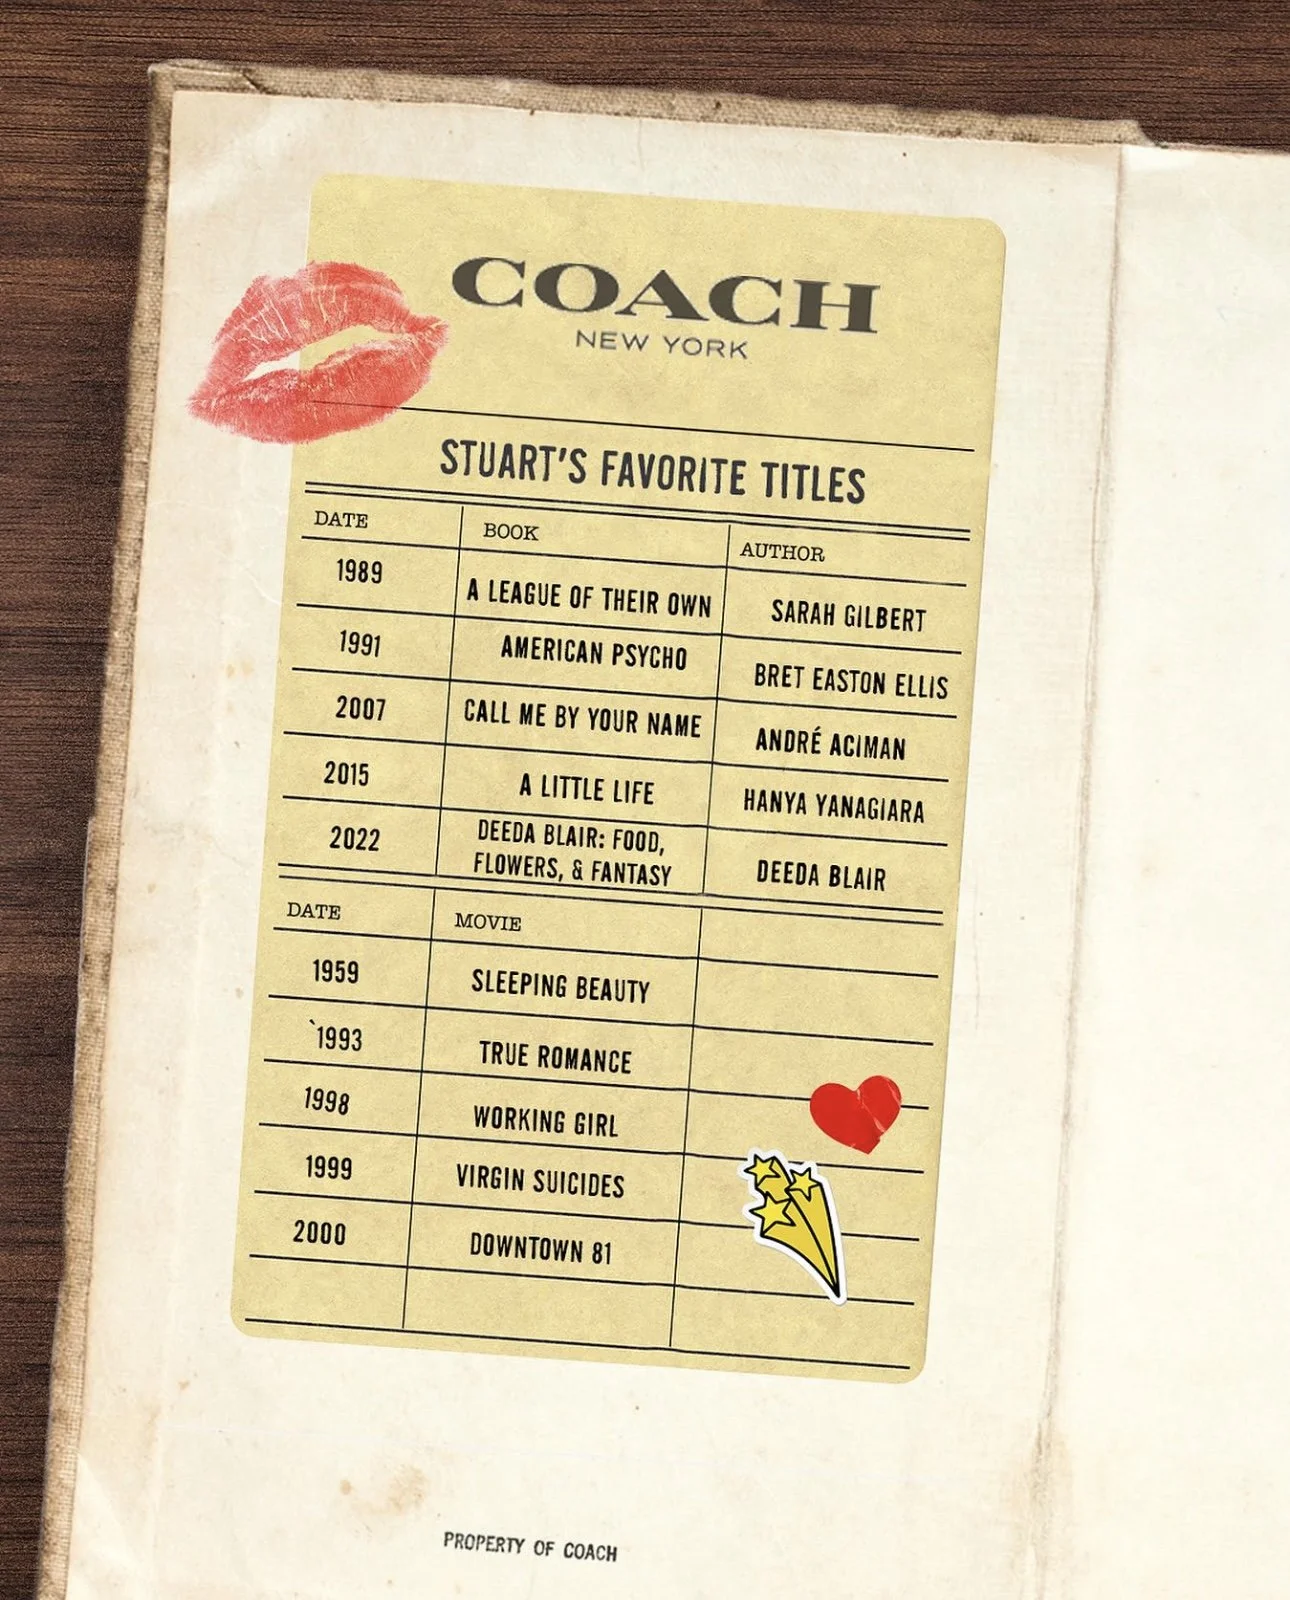 COACH
NEW YORK
STUART'S FAVORITE TITLES
DATE BOOK AUTHOR
1989 A LEAGUE OF THEIR OWN SARAH GILBERT
1991 AMERICAN PSYCHO BRET EASTON ELLIS
2007 CALL ME BY YOUR NAME ANDRÉ ACIMAN
2015 A LITTLE LIFE HANYA YANAGIARA
2022 DEEDA BLAIR: FOOD,
FLOWERS, & FANTASY DEEDA BLAIR
DATE MOVIE
1959 SLEEPING BEAUTY
`1993 TRUE ROMANCE
1998 WORKING GIRL
1999 VIRGIN SUICIDES
2000 DOWNTOWN 81
PROPERTY OF COACH